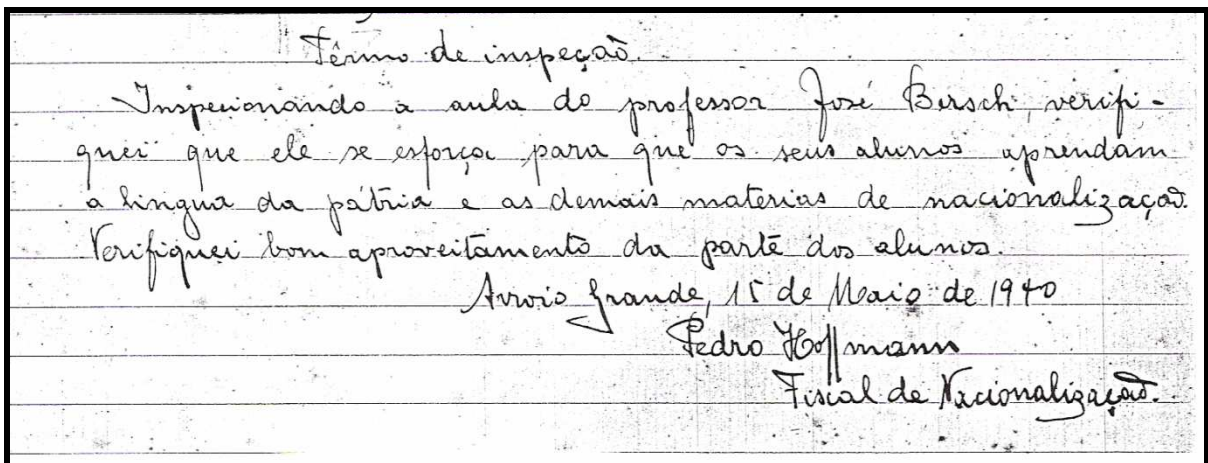 Têrmo de inspeção.
Inspecionando a aula do professor José Bersch, verifi-
quei que ele se esforça para que os seus alunos aprendam
a lingua da pátria e as demais materias de nacionalização.
Verifiquei bom aproveitamento da parte dos alunos.
Arroio Grande, 15 de Maio de 1940
Pedro Hoffmann
Fiscal de Nacionalização.